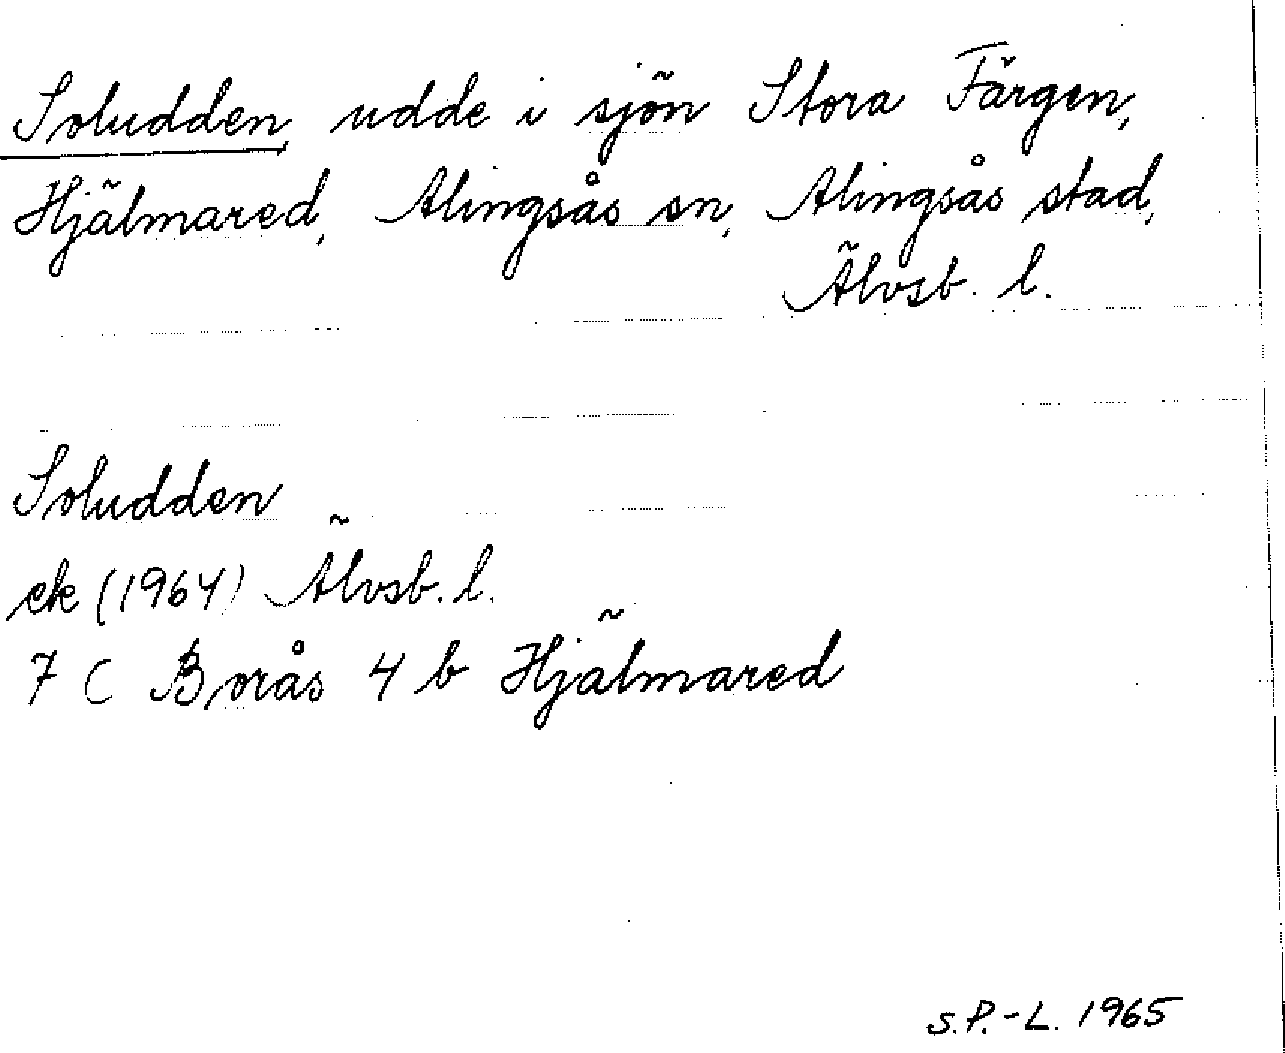 Soludden, udde i sjön Stora Färgen,
Hjälmared, Alingsås sn, Alingsås stad,
Älvsb. l.
Soludden
ek (1964) Älvsb. l.
7 C Borås 4 b Hjälmared
S.P.-L. 1965